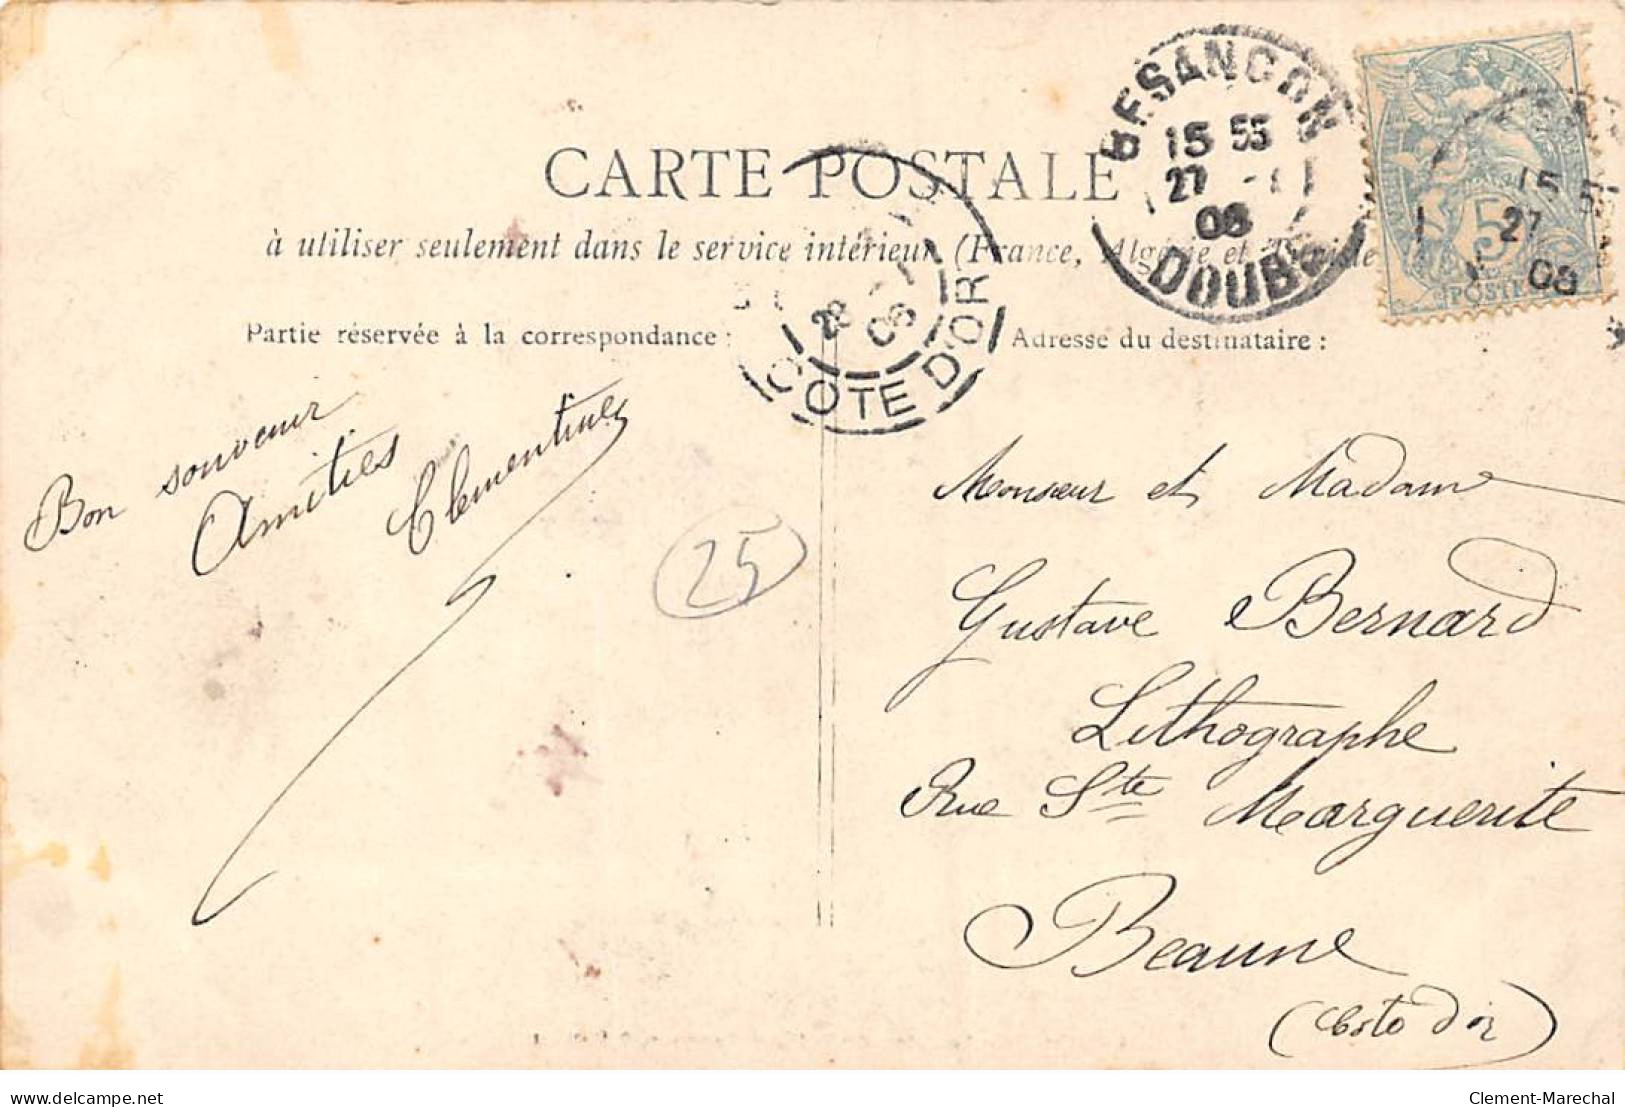 BESANCON
15 55
27
08
DOUBS
15 5
27
08
5
POSTE
CARTE POSTALE
à utiliser seulement dans le service intérieur (France, Algérie et Tunisie
28
08
COTE D'OR
Partie réservée à la correspondance :
Adresse du destinataire :
Bon souvenir
Amitiés
Clementine
25
Monsieur et Madame
Gustave Bernard
Lithographe
Rue Ste Marguerite
Beaune
(Cote d'or)
www.delcampe.net
Clement-Marechal